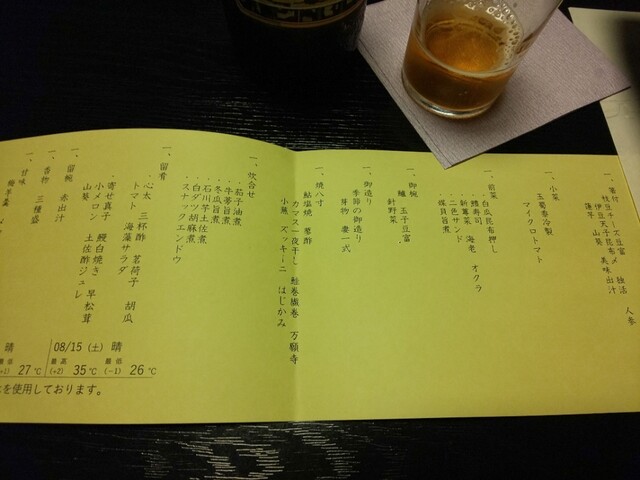 一、箸付
枝豆チーズ豆富 独活 人参
伊豆天子昆布〆 美味出汁
蓮芋 山葵
一、小菜
玉蜀黍冷製
マイクロトマト
一、前菜
白瓜昆布押し
鱧寿司 海老 オクラ
新蓴菜
二色サンド
媒貝旨煮
一、御椀
鱧 玉子豆富
針野菜
一、御造り
季節の御造り
芽物 妻一式
一、焼八寸
鮎塩焼 蓼酢
カマス一夜干し 鮭巻繊巻 万願寺
小蕪 ズッキーニ はじかみ
一、炊合せ
・茄子油煮
・牛蒡旨煮
・冬瓜旨煮
・石川芋土佐煮
・白ダツ胡麻煮
・スナックエンドウ
一、留肴
・心太 三杯酢 茗荷子 胡瓜
トマト 海藻サラダ
・寄せ真子 鰻白焼き 早松茸
小メロン 土佐酢ジュレ
山葵
一、留椀
赤出汁
一、香物 三種盛
一、甘味
梅羊羹
晴
(+1) 27℃
08/15 (土) 晴
最高 最低
(+2) 35℃ (−1) 26℃
を使用しております。